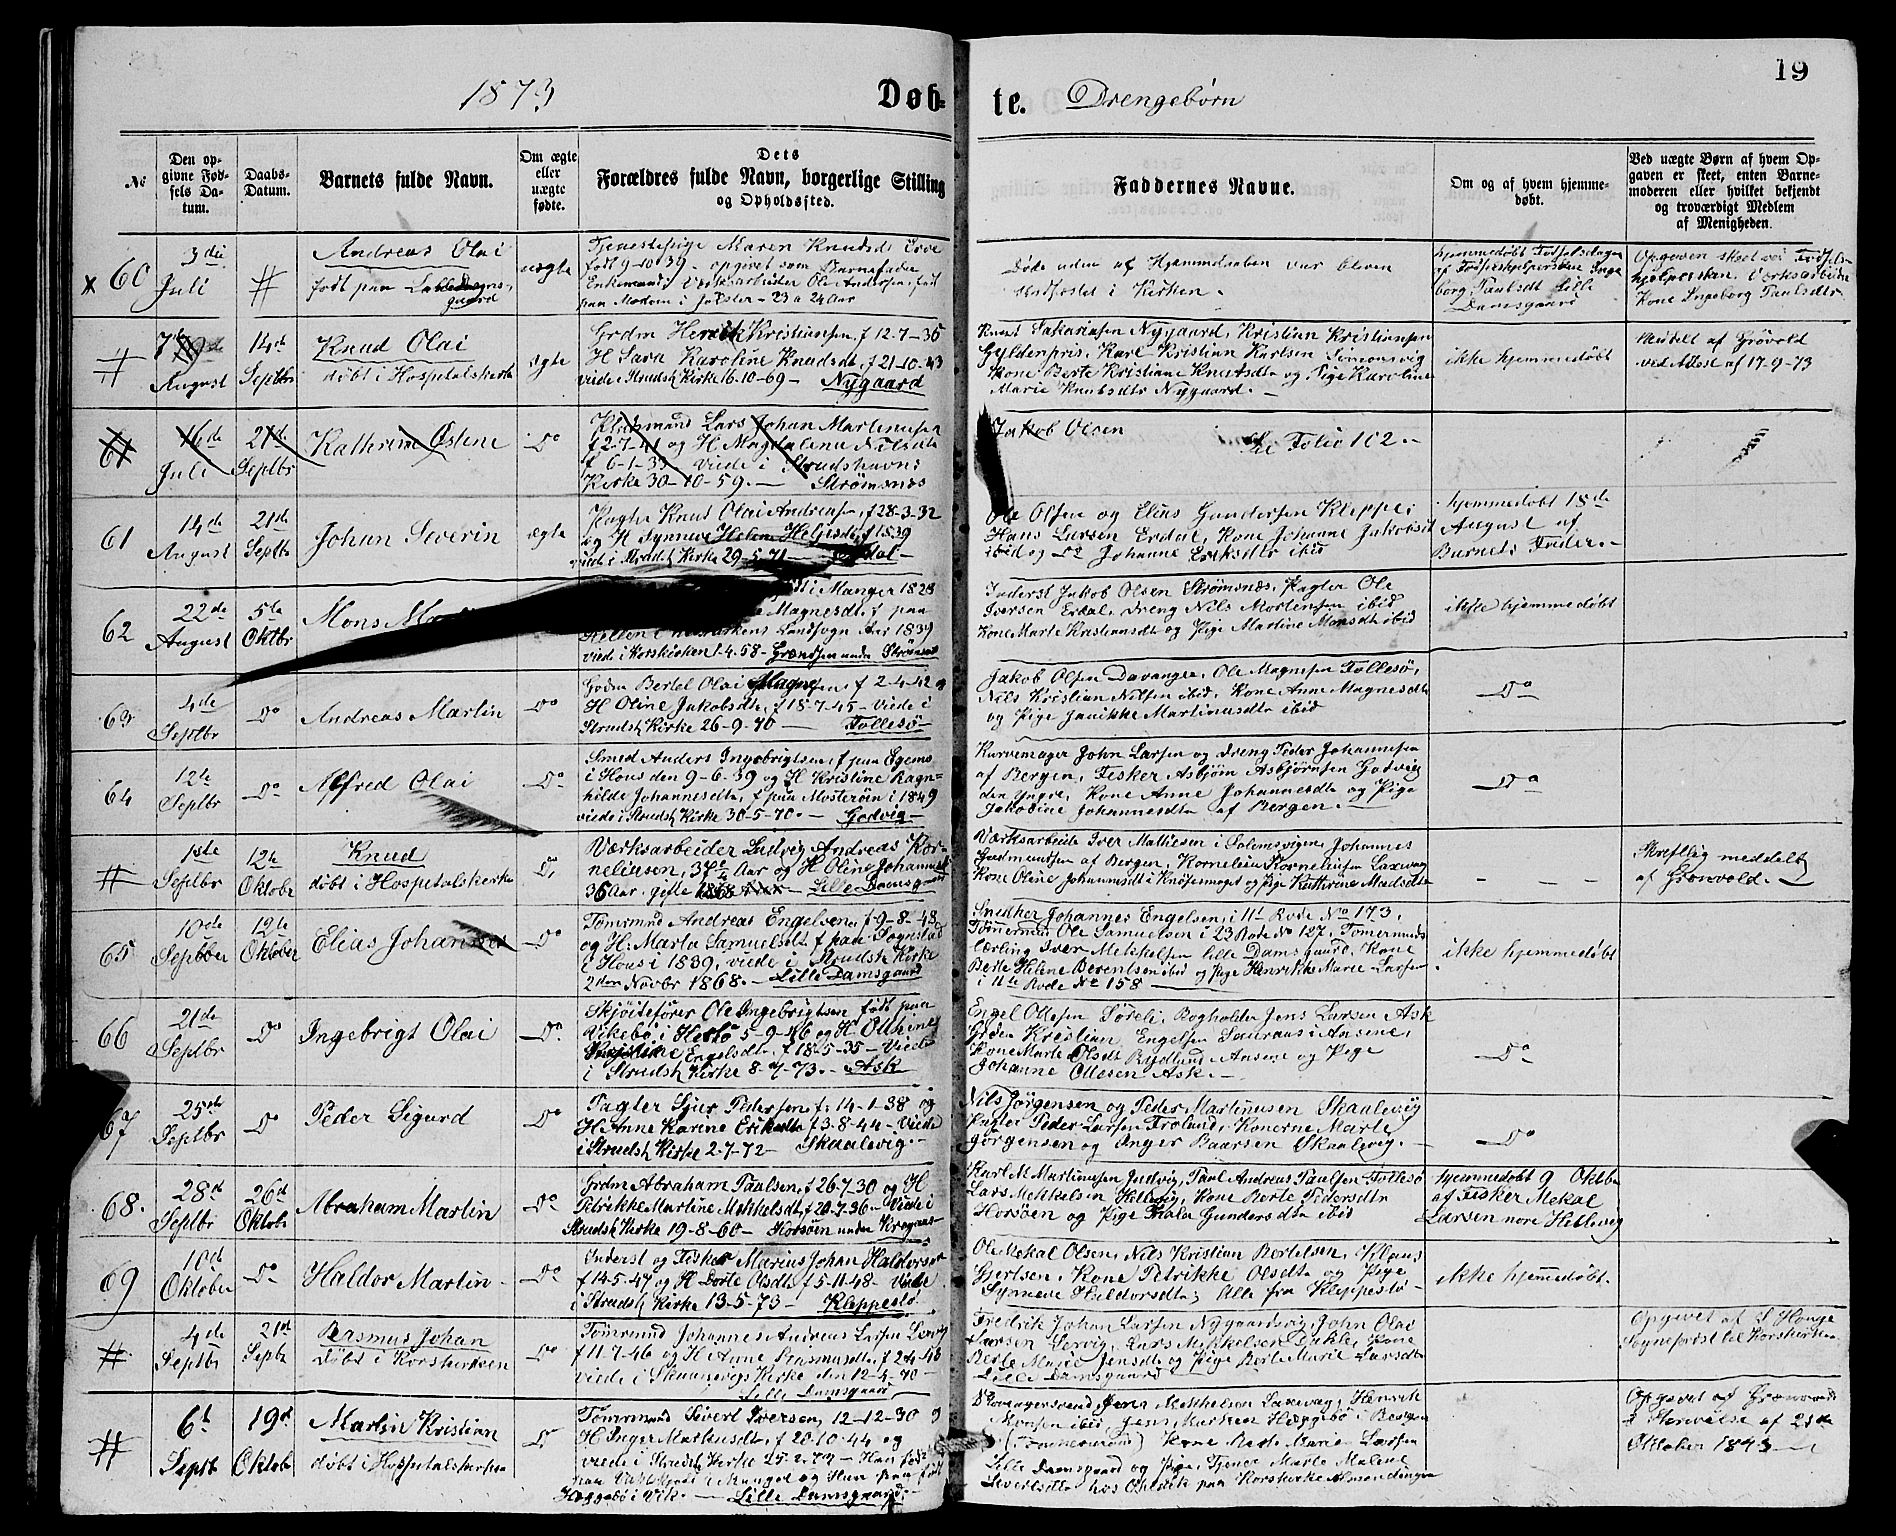 19
1873
Døb-
te.
Drengebørn
№
Den op-
givne Fød-
sels Da-
tum.
Daabs-
Datum.
Barnets fulde Navn.
Om ægte
eller
uægte
fødte.
Dets
Forældres fulde Navn, borgerlige Stilling
og Opholdssted.
Faddernes Navne.
Om og af hvem hjemme-
døbt.
Ved uægte Børn af hvem Op-
gaven er skeet, enten Barne-
moderen eller hvilket bekjendt
og troværdigt Medlem
af Menigheden.
x 60
3die
Juli
#
Andreas Olai
født paa
uægte
Tjenestepige Maren Knudsdt
født 9-10-39 - opgivet som Barnefader
Enkemand, Værksarbeider Ole Andersen, født
paa i Jølster - 23 a 24 Aar
Døde uden at Hjemmedaaben var bleven
stadfæstet i Kirken.
hjemmedøbt Fødselsdagen
af Inge
borg Paulsdt Lille
Damsgaard
Opgaven skeet ved Fødsels-
hjælpersken, Værksarbeider
Kone Ingeborg Paulsdtr
#
August
14de
Septbr
Knud Olai
døbt i Hospitalskirke
ægte
Grdm Henrik Kristiansen, f 12-7-35
H Sara Karoline Knudsdt, f 21-10-43
viede i Strudsh Kirke 16-10-69 - Nygaard
Knut Sakariasen Nygaard, Kristian Kristiansen
Gyldenpris, Karl Kristian Karlsen Simonsvig
Kone Berte Kristiane Knutsdt og Pige Karoline
Marie Knutsdtr Nygaard. -
ikke hjemmedøbt
Meddelt af Grøvold
ved Attest af 17-9-73
61
16de
Juli
21de
Septbr
Kathrine Østene
Do
Pladsmand Lars Johan Martinusen
f 2-7-41 og H. Magdalena Nilsdt
f 6-1-33 viede i Strudshavns
Kirke 30-10-59. - Strømsnæs
Jakob Olsen
Se Folio 102. -
61
14de
August
21de
Septbr
Johan Severin
ægte
Pagter Knut Olai Andreasen, f 28-3-32
og H Synneve Helene Heljesdt, f 1839
viede i Strudsh Kirke 29-5-71 - Erdal -
Ole Olsen og Elias Gundersen Kleppe,
Hans Larsen Erdal, Kone Johanne Jakobsdt
ibid og Do Johanne Eriksdtr ibid
hjemmedøbt 18de
August af
Barnets Fader. -
62
22de
August
5te
Oktbr
Mons
i Manger 1828
Magnesdt, f paa
Landsogn Aar 1839
viede i Korskirken 1-4-58 - Grændsen under Strømsnæs
Inderst Jakob Olsen Strømsnæs, Pagter Ole
Iversen Erdal, Dreng Nils Mortensen ibid
Kone Marte Kristiansdt og Pige Martine Monsdt ibid
ikke hjemmedøbt
63
4de
Septbr
Do
Andreas Martin
Do
Grdm Bertel Olai Magnesen, f 2-4-42 og
H Oline Jakobsdt, f 18-7-45 - Viede i
Strudsh Kirke 26-9-70 - Follesø -
Jakob Olsen Davanger, Ole Magnesen Follesø,
Nils Kristian Nilsen ibid, Kone Anne Magnesdt
og Pige Janikke Martinusdt ibid
Do
64
12te
Septbr
Do
Alfred Olai
Do
Smed Anders Ingebrigtsen, f paa Egenæs
i Hous den 9-6-39 og H. Kristine Ragn=
hilde Johannesdt, f paa Mosterøen i 1849
viede i Strudsh Kirke 30-5-70. - Godvig -
Kurvemager John Larsen og Dreng Peder Johannesen
af Bergen, Fisker Asbjørn Asbjørnsen Godvig
den Yngre, Kone Anne Johannesdt og Pige
Jakobine Johannesdt af Bergen. -
Do
#
1ste
Septbr
12te
Oktober
Knud
døbt i Hospitalskirke
Do
Værksarbeider Ludvig Andreas Kor-
neliusen, 37 Aar og H Oline Johannesdt
36 Aar, gifte 1868 - Lille Damsgaard
Værksarbeider Iver Mathiesen i Solemsvigen, Johannes
Gudmundsen af Bergen, Kornelius Kornelius Laxevaag
Kone Oline Johannesdt i Knøsesmoget og Pige Kathrine Madsdt
- - -
Skriftlig meddelt
af Grønvold. -
65
10de
Septber
12te
Oktober
Elias Johannes
Do
Tømrmnd Andreas Engelsen, f 9-8-48
og H. Marta Samuelsdt, f paa Fognstad
i Hous i 1839, viede i Strudsh Kirke
2den Novbr 1868. - Lille Damsgaard
Snedker Johannes Engelsen, i 11te Rode No 173,
Tømrmnd Ole Samuelsen i 23 Rode No 127, Tømermnds
lærling Iver Mekkelsen lille Damsgaard, Kone
Berte Helene Berentsen ibid og Pige Henrikke Marie Larsen
i 11te Rode No 158 -
ikke hjemmedøbt
66
21de
Septbr
Do
Ingebrigt Olai
Do
Skjøitefører Ole Ingebrigtsen født paa
Vikebø i Herlø 5-9-46 og H. Othine
Engelsdt, f 18-5-35 - Viede
i Strudsh Kirke 8-7-73. - Ask
Engel Ollesen Søreli, Bogholder Jens Larsen Ask
Grdm Kristian Engelsen Saaraas i Aasene,
Kone Marte Olsdt Rødland Aasene og Pige
Johanne Ollesen Ask. -
Do
67
25de
Septbr
Do
Peder Sigurd
Do
Pagter Sjur Pedersen, f 14-1-38 og
H. Anne Karine Eriksdt f 3-8-44 - Viede
i Strudsh Kirke 2-7-72 - Skaalevig. -
Nils Jørgensen og Peder Martinusen Skaalevig
Pagter Peder Larsen Frølund, Konerne Marte
Jørgensen og Inger Baarsen Skaalevig. -
Do
68.
28d
Septbr
26d
Oktobr
Abraham Martin
Do
Grdm Abraham Paulsen, f 26-7-30 og H
Petrikke Martine Mekkelsdt, f 20-7-36 - Viede i
Strudsh Kirke 19-8-60 - Horsøen under Kragaas
Karl M Martinusen Juvig, Paul Andreas Paulsen Follesø
Lars Mekkelsen Hillevig, Kone Berte Pedersdtr
Horsøen og Pige Thala Gundersdt ibid
hjemmedøbt 9 Oktbr
af Fisker Mekal
Larsen nore Hillevig
69
10d
Oktober
Do
Haldor Martin
Do
Inderst og Fisker Marius Johan Haldorsen
f 14-5-47 og H Dorte Olsdt, f 5-11-48 - Viede
i Strudsh Kirke 13-5-73 - Kleppestø
Ole Mekal Olsen, Nils Kristian Bertelsen, Klaus
Gjertsen, Kone Petrikke Olsdt og Pige
Synneve Haldorsdt; Alle fra Kleppestø -
ikke hjemmedøbt.
#
4de
Septbr
21de
Septbr
Rasmus Johan
døbt i Korskirken
Do
Tømrmnd Johannes Andreas Larsen Lervig
f 11-7-46 og H Anne Rasmusdt, f
viede i Skaanevigs Kirke den 12-4-70 -
Lille Damsgaard
Fredrik Johan Larsen Nygaardsvig, John Olai
Larsen Lervig, Lars Mekkelsen Kone
Berte Marie Jensdt og Pige Berte Marie Larsdt
Lille Damsgaard
Opgivet af S Hauge
Sogneprest til Korskirken
#
6t
Septb
19de
Oktob
Martin Kristian
døbt i Hospitalskirken
Do
Tømrmnd Sivert Iversen, 12-12-30 og
H Inger Martensdt, f 20-10-44 og
viede i Strudsh Kirke - Han født
paa i Manger og Hun paa født
i Vik. - Lille Damsgaard. -
Jens Mekkelsen Laxevaag, Henrik
Monsen ibid, Jens i Bergen
(Tømmermænd) Kone Berte Marie Larsen
Lille Damsgaard og Pige, Tjener Marte Malene
Sivertsdt hos paa Korskirke Almendingen
Opgivet af Grønvold
i Skrivelse af 21de
Oktober 1873 -